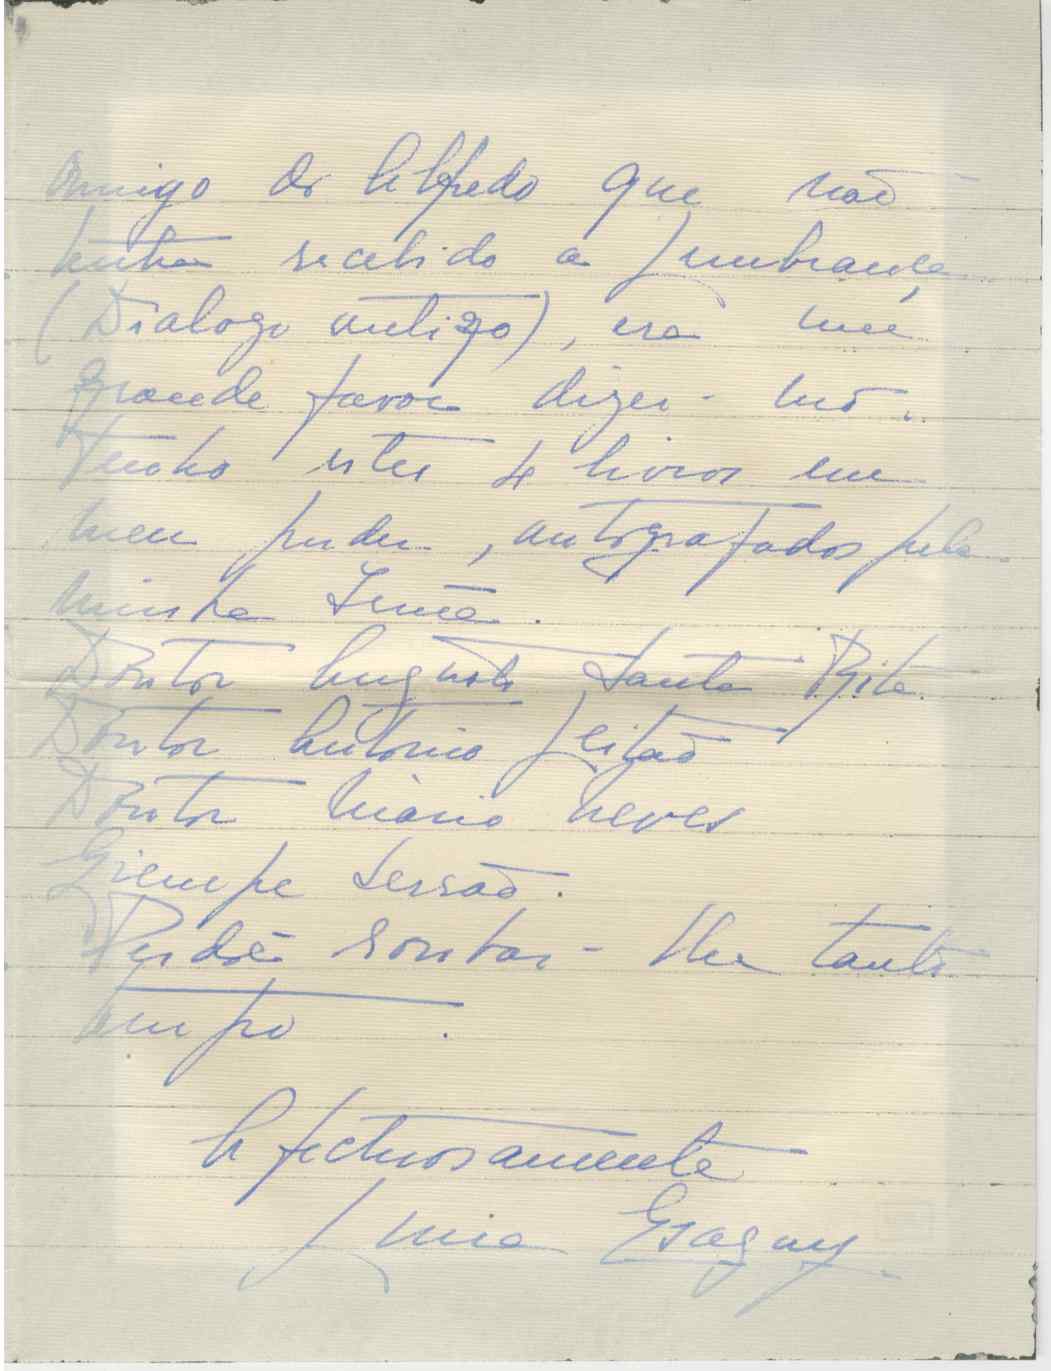 Amigo do Alfredo que não
tinha recebido a lembrança
(Dialogo antigo), era um
grande favor dizer-mo.
Tenho estes 4 livros em
meu poder, autografados pela
minha Irmã.
Doutor Augusto Santa Rita
Doutor António Leitão
Doutor Mário Neves
Guempe Serrão.
Perdõe roubar-lhe tanto
tempo.
Afectuosamente
Esaguy